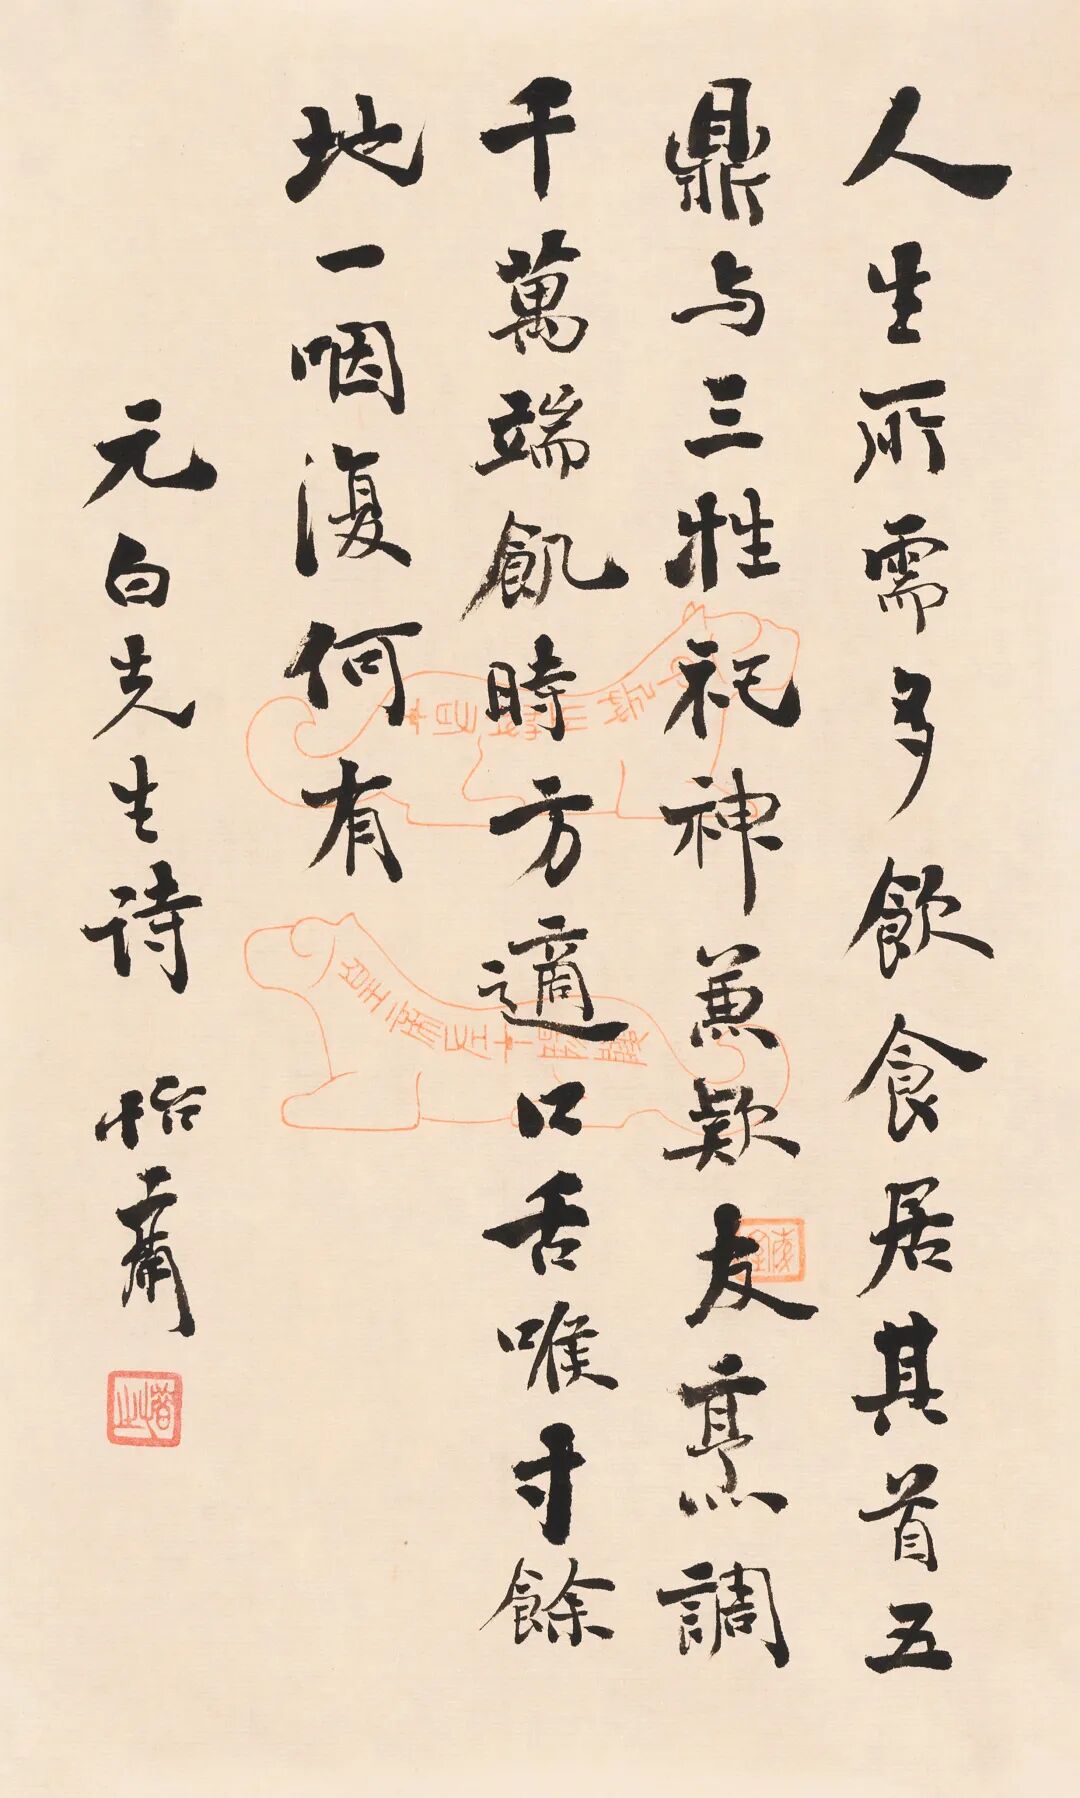 人生所需多飲食居其首五
鼎与三牲祀神兼款友烹調
千萬端飢時方適口舌喉寸餘
地一咽復何有
元白先生诗 怡齋